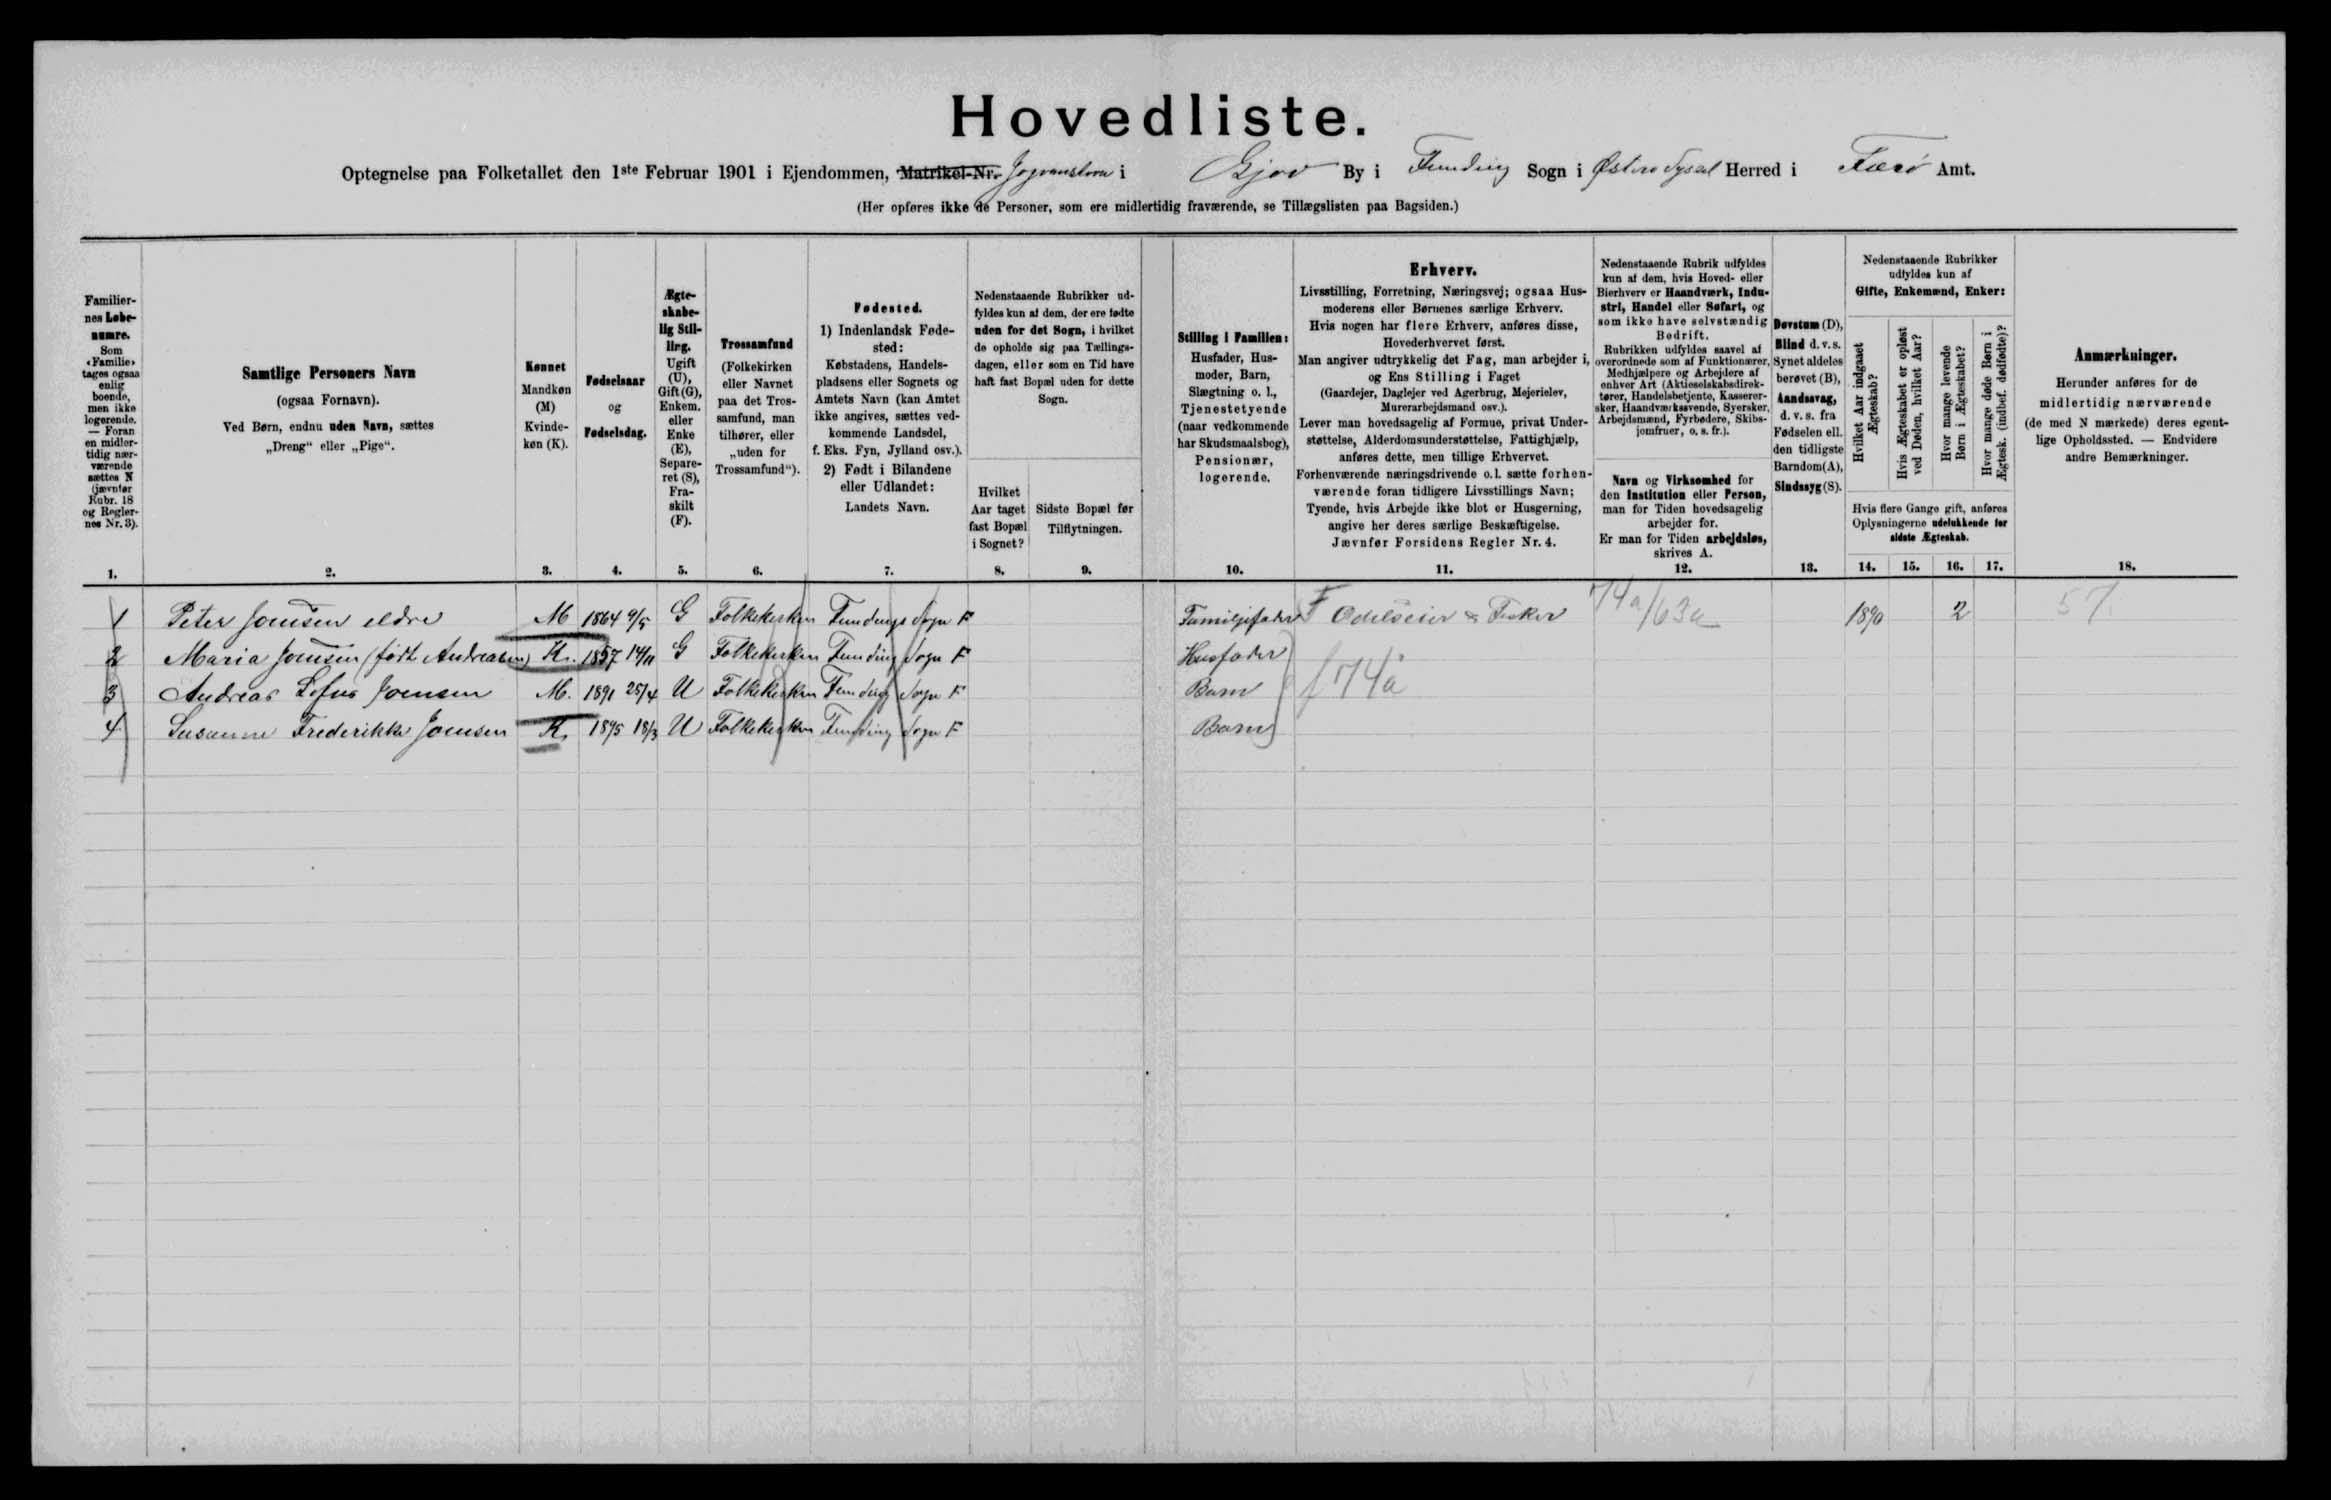 Hovedliste.
Optegnelse paa Folketallet den 1ste Februar 1901 i Ejendommen, Matrikel-Nr. Jogvanstova i Gjov By i Funding Sogn i Østerø Syssel Herred i Færø Amt.
(Her opføres ikke de Personer, som ere midlertidig fraværende, se Tillægslisten paa Bagsiden.)
Familier-
nes Løbe-
numre.
Som
«Familie»
tages ogsaa
enlig
boende,
men ikke
logerende.
— Foran
en midler-
tidig nær-
værende
sættes N
(jævnfør
Rubr. 18
og Regler-
nes Nr. 3).
1.
Samtlige Personers Navn
(ogsaa Fornavn).
Ved Børn, endnu uden Navn, sættes
„Dreng“ eller „Pige“.
2.
Kønnet
Mandkøn
(M)
Kvinde-
køn (K).
3.
Fødselsaar
og
Fødselsdag.
4.
Ægte-
skabe-
lig Stil-
ling.
Ugift
(U),
Gift (G),
Enkem.
eller
Enke
(E),
Separe-
ret (S),
Fra-
skilt
(F).
5.
Trossamfund
(Folkekirken
eller Navnet
paa det Tros-
samfund, man
tilhører, eller
„uden for
Trossamfund“).
6.
Fødested.
1) Indenlandsk Føde-
sted:
Købstadens, Handels-
pladsens eller Sognets og
Amtets Navn (kan Amtet
ikke angives, sættes ved-
kommende Landsdel,
f. Eks. Fyn, Jylland osv.).
2) Født i Bilandene
eller Udlandet:
Landets Navn.
7.
Nedenstaaende Rubrikker ud-
fyldes kun af dem, der ere fødte
uden for det Sogn, i hvilket
de opholde sig paa Tællings-
dagen, eller som en Tid have
haft fast Bopæl uden for dette
Sogn.
Hvilket
Aar taget
fast Bopæl
i Sognet?
8.
Sidste Bopæl før
Tilflytningen.
9.
Stilling i Familien:
Husfader, Hus-
moder, Barn,
Slægtning o. l.,
Tjenestetyende
(naar vedkommende
har Skudsmaalsbog),
Pensionær,
logerende.
10.
Erhverv.
Livsstilling, Forretning, Næringsvej; ogsaa Hus-
moderens eller Børnenes særlige Erhverv.
Hvis nogen har flere Erhverv, anføres disse,
Hovederhvervet først.
Man angiver udtrykkelig det Fag, man arbejder i,
og Ens Stilling i Faget
(Gaardejer, Daglejer ved Agerbrug, Mejerielev,
Murerarbejdsmand osv.).
Lever man hovedsagelig af Formue, privat Under-
støttelse, Alderdomsunderstøttelse, Fattighjælp,
anføres dette, men tillige Erhvervet.
Forhenværende næringsdrivende o. l. sætte forhen-
værende foran tidligere Livsstillings Navn;
Tyende, hvis Arbejde ikke blot er Husgerning,
angive her deres særlige Beskæftigelse.
Jævnfør Forsidens Regler Nr. 4.
11.
Nedenstaaende Rubrik udfyldes
kun af dem, hvis Hoved- eller
Bierhverv er Haandværk, Indu-
stri, Handel eller Søfart, og
som ikke have selvstændig
Bedrift.
Rubrikken udfyldes saavel af
overordnede som af Funktionærer,
Medhjælpere og Arbejdere af
enhver Art (Aktieselskabsdirek-
tører, Handelsbetjente, Kasserer-
sker, Haandværkssvende, Syersker,
Arbejdsmænd, Fyrbødere, Skibs-
jomfruer, o. s. fr.).
Navn og Virksomhed for
den Institution eller Person,
man for Tiden hovedsagelig
arbejder for.
Er man for Tiden arbejdsløs,
skrives A.
12.
Døvstum (D),
Blind d. v. s.
Synet aldeles
berøvet (B),
Aandssvag,
d. v. s. fra
Fødselen ell.
den tidligste
Barndom (A),
Sindssyg (S).
13.
Nedenstaaende Rubrikker
udfyldes kun af
Gifte, Enkemænd, Enker:
Hvilket Aar indgaaet
Ægteskab?
Hvis Ægteskabet er opløst
ved Døden, hvilket Aar?
Hvor mange levende
Børn i Ægteskabet?
Hvor mange døde Børn i
Ægtesk. (indbef. dødfødte)?
Hvis flere Gange gift, anføres
Oplysningerne udelukkende for
sidste Ægteskab.
14. 15. 16. 17.
Anmærkninger.
Herunder anføres for de
midlertidig nærværende
(de med N mærkede) deres egent-
lige Opholdssted. — Endvidere
andre Bemærkninger.
18.
1 Peter Joensen eldre M 1864 9/5 G Folkekirken Fundings Sogn F Familjefader F Odelseier & Fisker 74a/63a 1890 2 57.
2 Maria Joensen (født Andreasen) K. 1857 14/11 G Folkekirken Funding Sogn F Husfader
3 Andreas Sofus Joensen M. 1891 25/4 U Folkekirken Funding Sogn F Barn f 74a
4 Susanne Frederikke Joensen K. 1895 18/3 U Folkekirken Funding Sogn F Barn